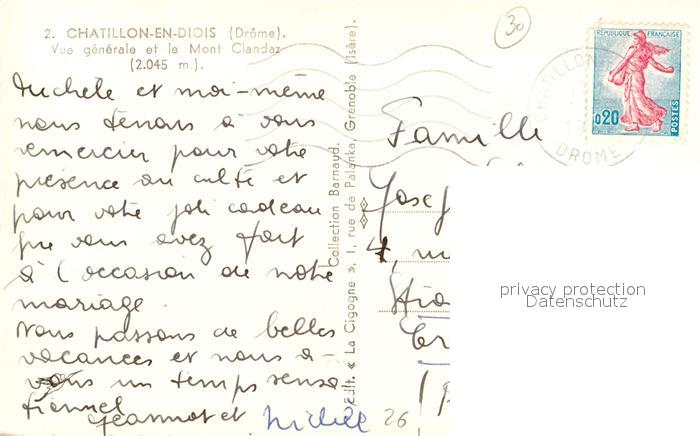 2. CHATILLON-EN-DIOIS (Drôme).
Vue générale et le Mont Clandaz
(2.045 m.).
Michèle et moi-même
nous tenons à vous
remercier pour votre
présence au culte et
pour votre joli cadeau
que vous avez fait
à l'occasion de notre
mariage.
Nous passons de belles
vacances et nous a-
vons un temps sensa
tionnel
Jeannot et Michèle
26
Édit. « La Cigogne », 1, rue de Palanka, Grenoble (Isère).
Collection Barnaud.
30
RÉPUBLIQUE FRANÇAISE
0,20
POSTES
CHATILLON
DROME
Famille
Josep
4, ru
privacy protection
Datenschutz